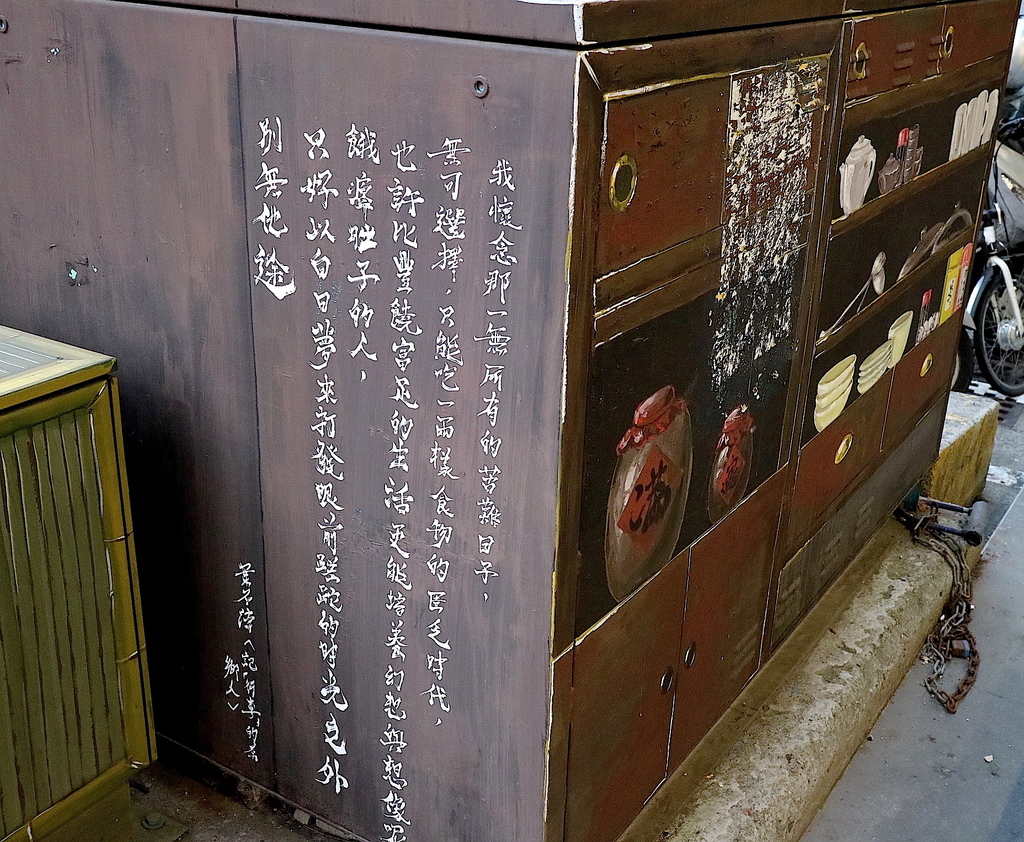 我懷念那一無所有的苦難日子，
無可選擇，只能吃一兩樣食物的匱乏時代，
也許比豐饒富足的生活更能培養幻想與想像呢
餓癟肚子的人，
只好以白日夢來打發眼前蹉跎的時光之外
別無他途
葉石濤
滿